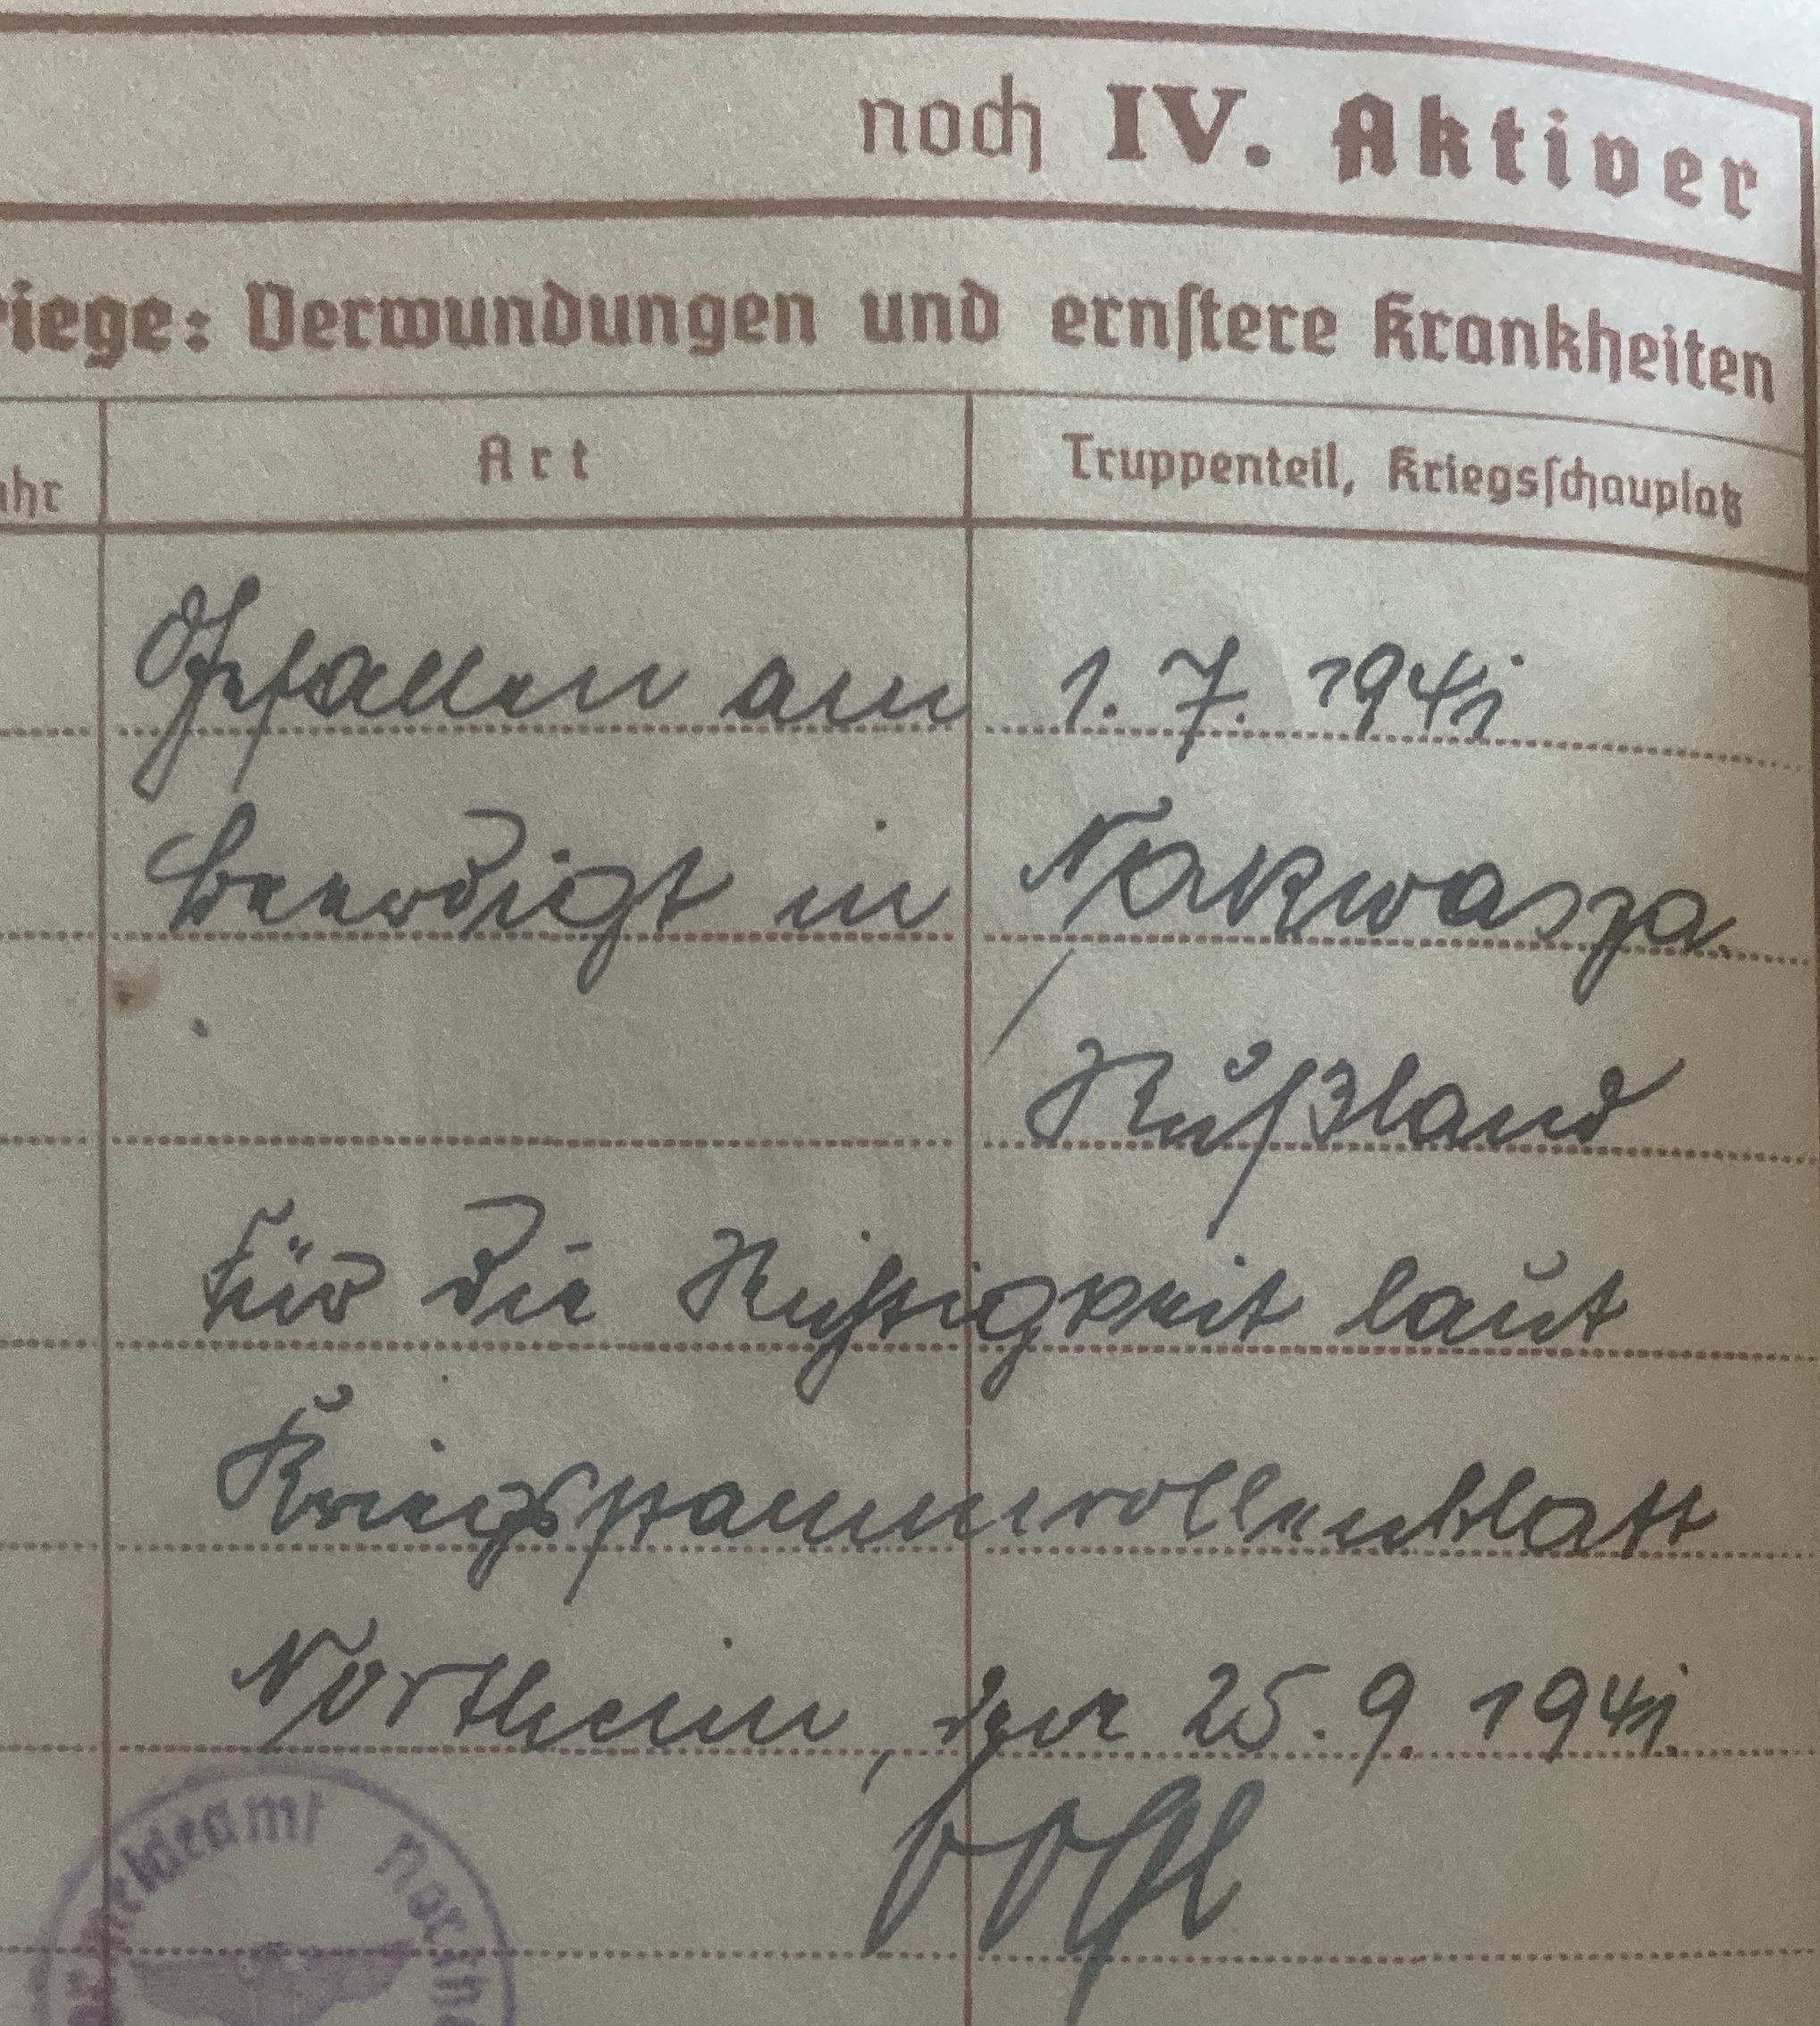 noch IV. Aktiver
riege: Verwundungen und ernstere Krankheiten
ahr Art Truppenteil, Kriegsschauplatz
Gefallen am 1. 7. 1941
beerdigt in Nakwasza.
Rußland
Für die Richtigkeit laut
Kriegsstammrollenblatt
Northeim, den 25. 9. 1941.
meldeamt Northe